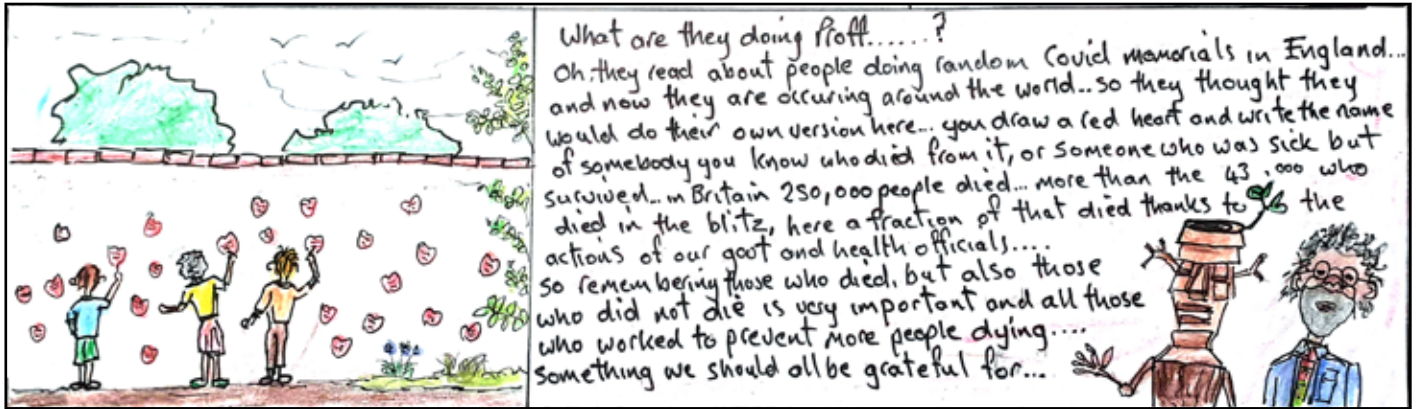 What are they doing Proff......?
Oh they read about people doing random Covid memorials in England...
and now they are occuring around the world.. so they thought they
would do their own version here... you draw a red heart and write the name
of somebody you know who died from it, or someone who was sick but
survived... in Britain 250,000 people died... more than the 43,000 who
died in the blitz, here a fraction of that died thanks to the
actions of our govt and health officials....
so remembering those who died, but also those
who did not die is very important and all those
who worked to prevent more people dying....
something we should all be grateful for...